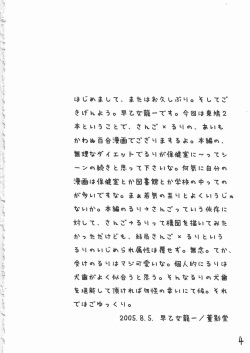 はじめまして、またはお久しぶり。そしてご
きげんよう。早乙女龍一です。今回は東鳩2
本ということで、さんご×るりの、あいも
かわぬ百合漫画でござりまするよ。本編の、
無理なダイエットでるりが保健室に〜ってシ
ーンの続きと思って下さいな。何気に自分の
漫画は保健室とか図書館とか学校の中っての
が多いですな。まぁ若気の至りとよくいうじゃ
ないか。本編のるり→さんごっていう依存に
対して、さんご→るりって構図を描いてみた
かっただけども、結局さんご×るりという
るりのいじめられ属性は覆せず。無念。てか、
受けのるりはマジ可愛いな。個人的にるりは
犬歯がよく似合うと思う。そんなるりの犬歯
を堪能して頂ければ物怪の幸いにて候。それ
ではごゆっくり。
2005.8.5. 早乙女龍一／董影堂
4